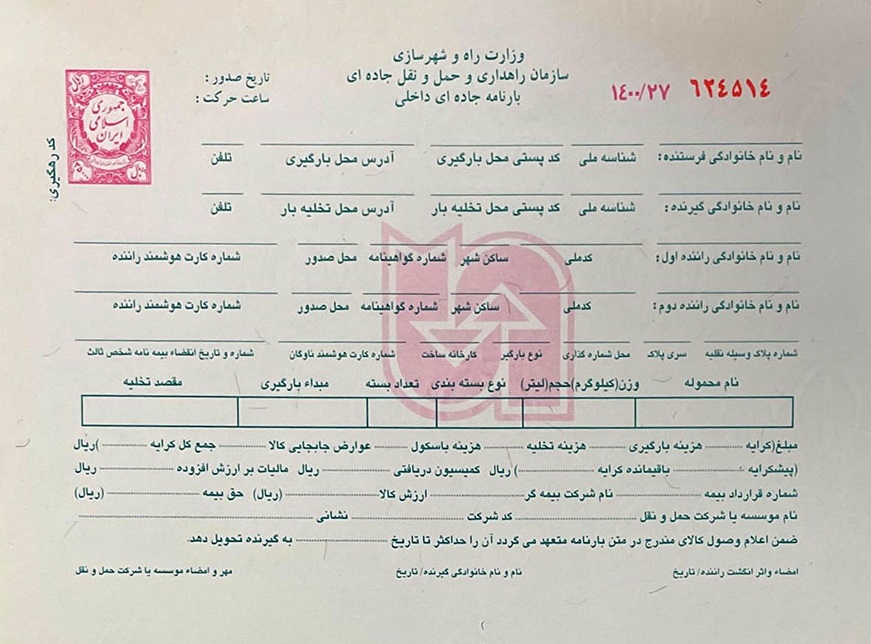 وزارت راه و شهرسازی
سازمان راهداری و حمل و نقل جاده ای
بارنامه جاده ای داخلی
۱۴۰۰/۲۷ ۶۲۴۵۱۴
تاریخ صدور :
ساعت حرکت :
ریال
جمهوری
اسلامی
ایران
ریال
کد رهگیری:
نام و نام خانوادگی فرستنده: شناسه ملی کد پستی محل بارگیری آدرس محل بارگیری تلفن
نام و نام خانوادگی گیرنده: شناسه ملی کد پستی محل تخلیه بار آدرس محل تخلیه بار تلفن
نام و نام خانوادگی راننده اول: کدملی ساکن شهر شماره گواهینامه محل صدور شماره کارت هوشمند راننده
نام و نام خانوادگی راننده دوم: کدملی ساکن شهر شماره گواهینامه محل صدور شماره کارت هوشمند راننده
شماره پلاک وسیله نقلیه سری پلاک محل شماره گذاری نوع بارگیر کارخانه ساخت شماره کارت هوشمند ناوگان شماره و تاریخ انقضاء بیمه نامه شخص ثالث
نام محموله وزن(کیلوگرم)حجم(لیتر) نوع بسته بندی تعداد بسته مبداء بارگیری مقصد تخلیه
مبلغ(کرایه ........ هزینه بارگیری ........ هزینه تخلیه ........ هزینه باسکول ........ عوارض جابجایی کالا ........ جمع کل کرایه ........ )ریال
(پیشکرایه ........ باقیمانده کرایه ........ ) ریال کمیسیون دریافتی ........ ریال مالیات بر ارزش افزوده ........ ریال
شماره قرارداد بیمه ........ نام شرکت بیمه گر ........ ارزش کالا ........ (ریال) حق بیمه ........ (ریال)
نام موسسه یا شرکت حمل و نقل ........ کد شرکت ........ نشانی ........
ضمن اعلام وصول کالای مندرج در متن بارنامه متعهد می گردد آن را حداکثر تا تاریخ ........ به گیرنده تحویل دهد.
امضاء واثر انگشت راننده/ تاریخ نام و نام خانوادگی گیرنده/ تاریخ مهر و امضاء موسسه یا شرکت حمل و نقل